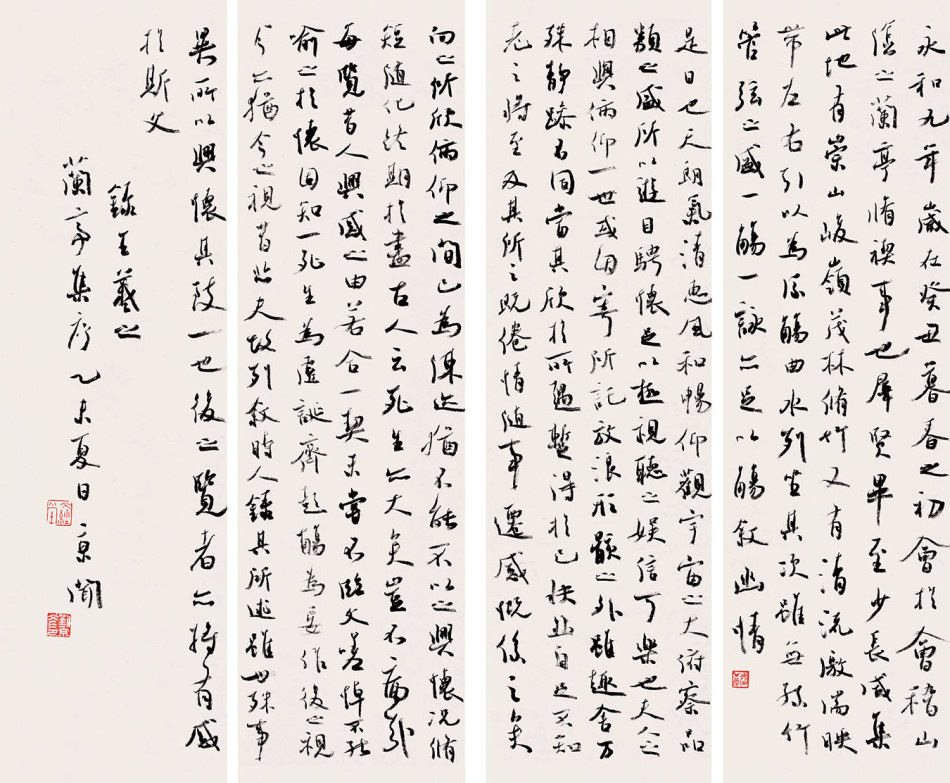 永和九年歲在癸丑暮春之初會於會稽山
陰之蘭亭脩禊事也羣賢畢至少長咸集
此地有崇山峻嶺茂林脩竹又有清流激湍映
帶左右引以為流觴曲水列坐其次雖無絲竹
管弦之盛一觴一詠亦足以觴敘幽情
是日也天朗氣清惠風和暢仰觀宇宙之大俯察品
類之盛所以遊目騁懷足以極視聽之娛信可樂也夫人之
相與俯仰一世或因寄所託放浪形骸之外雖趣舍萬
殊靜躁不同當其欣於所遇暫得於己快然自足不知
老之將至及其所之既倦情隨事遷感慨係之矣
向之所欣俯仰之間已為陳迹猶不能不以之興懷況脩
短隨化終期於盡古人云死生亦大矣豈不痛哉
每覽昔人興感之由若合一契未嘗不臨文嗟悼不能
喻之於懷固知一死生為虛誕齊彭殤為妄作後之視
今亦猶今之視昔悲夫故列敘時人錄其所述雖世殊事
異所以興懷其致一也後之覽者亦將有感
於斯文
錄王羲之
蘭亭集序乙未夏日京